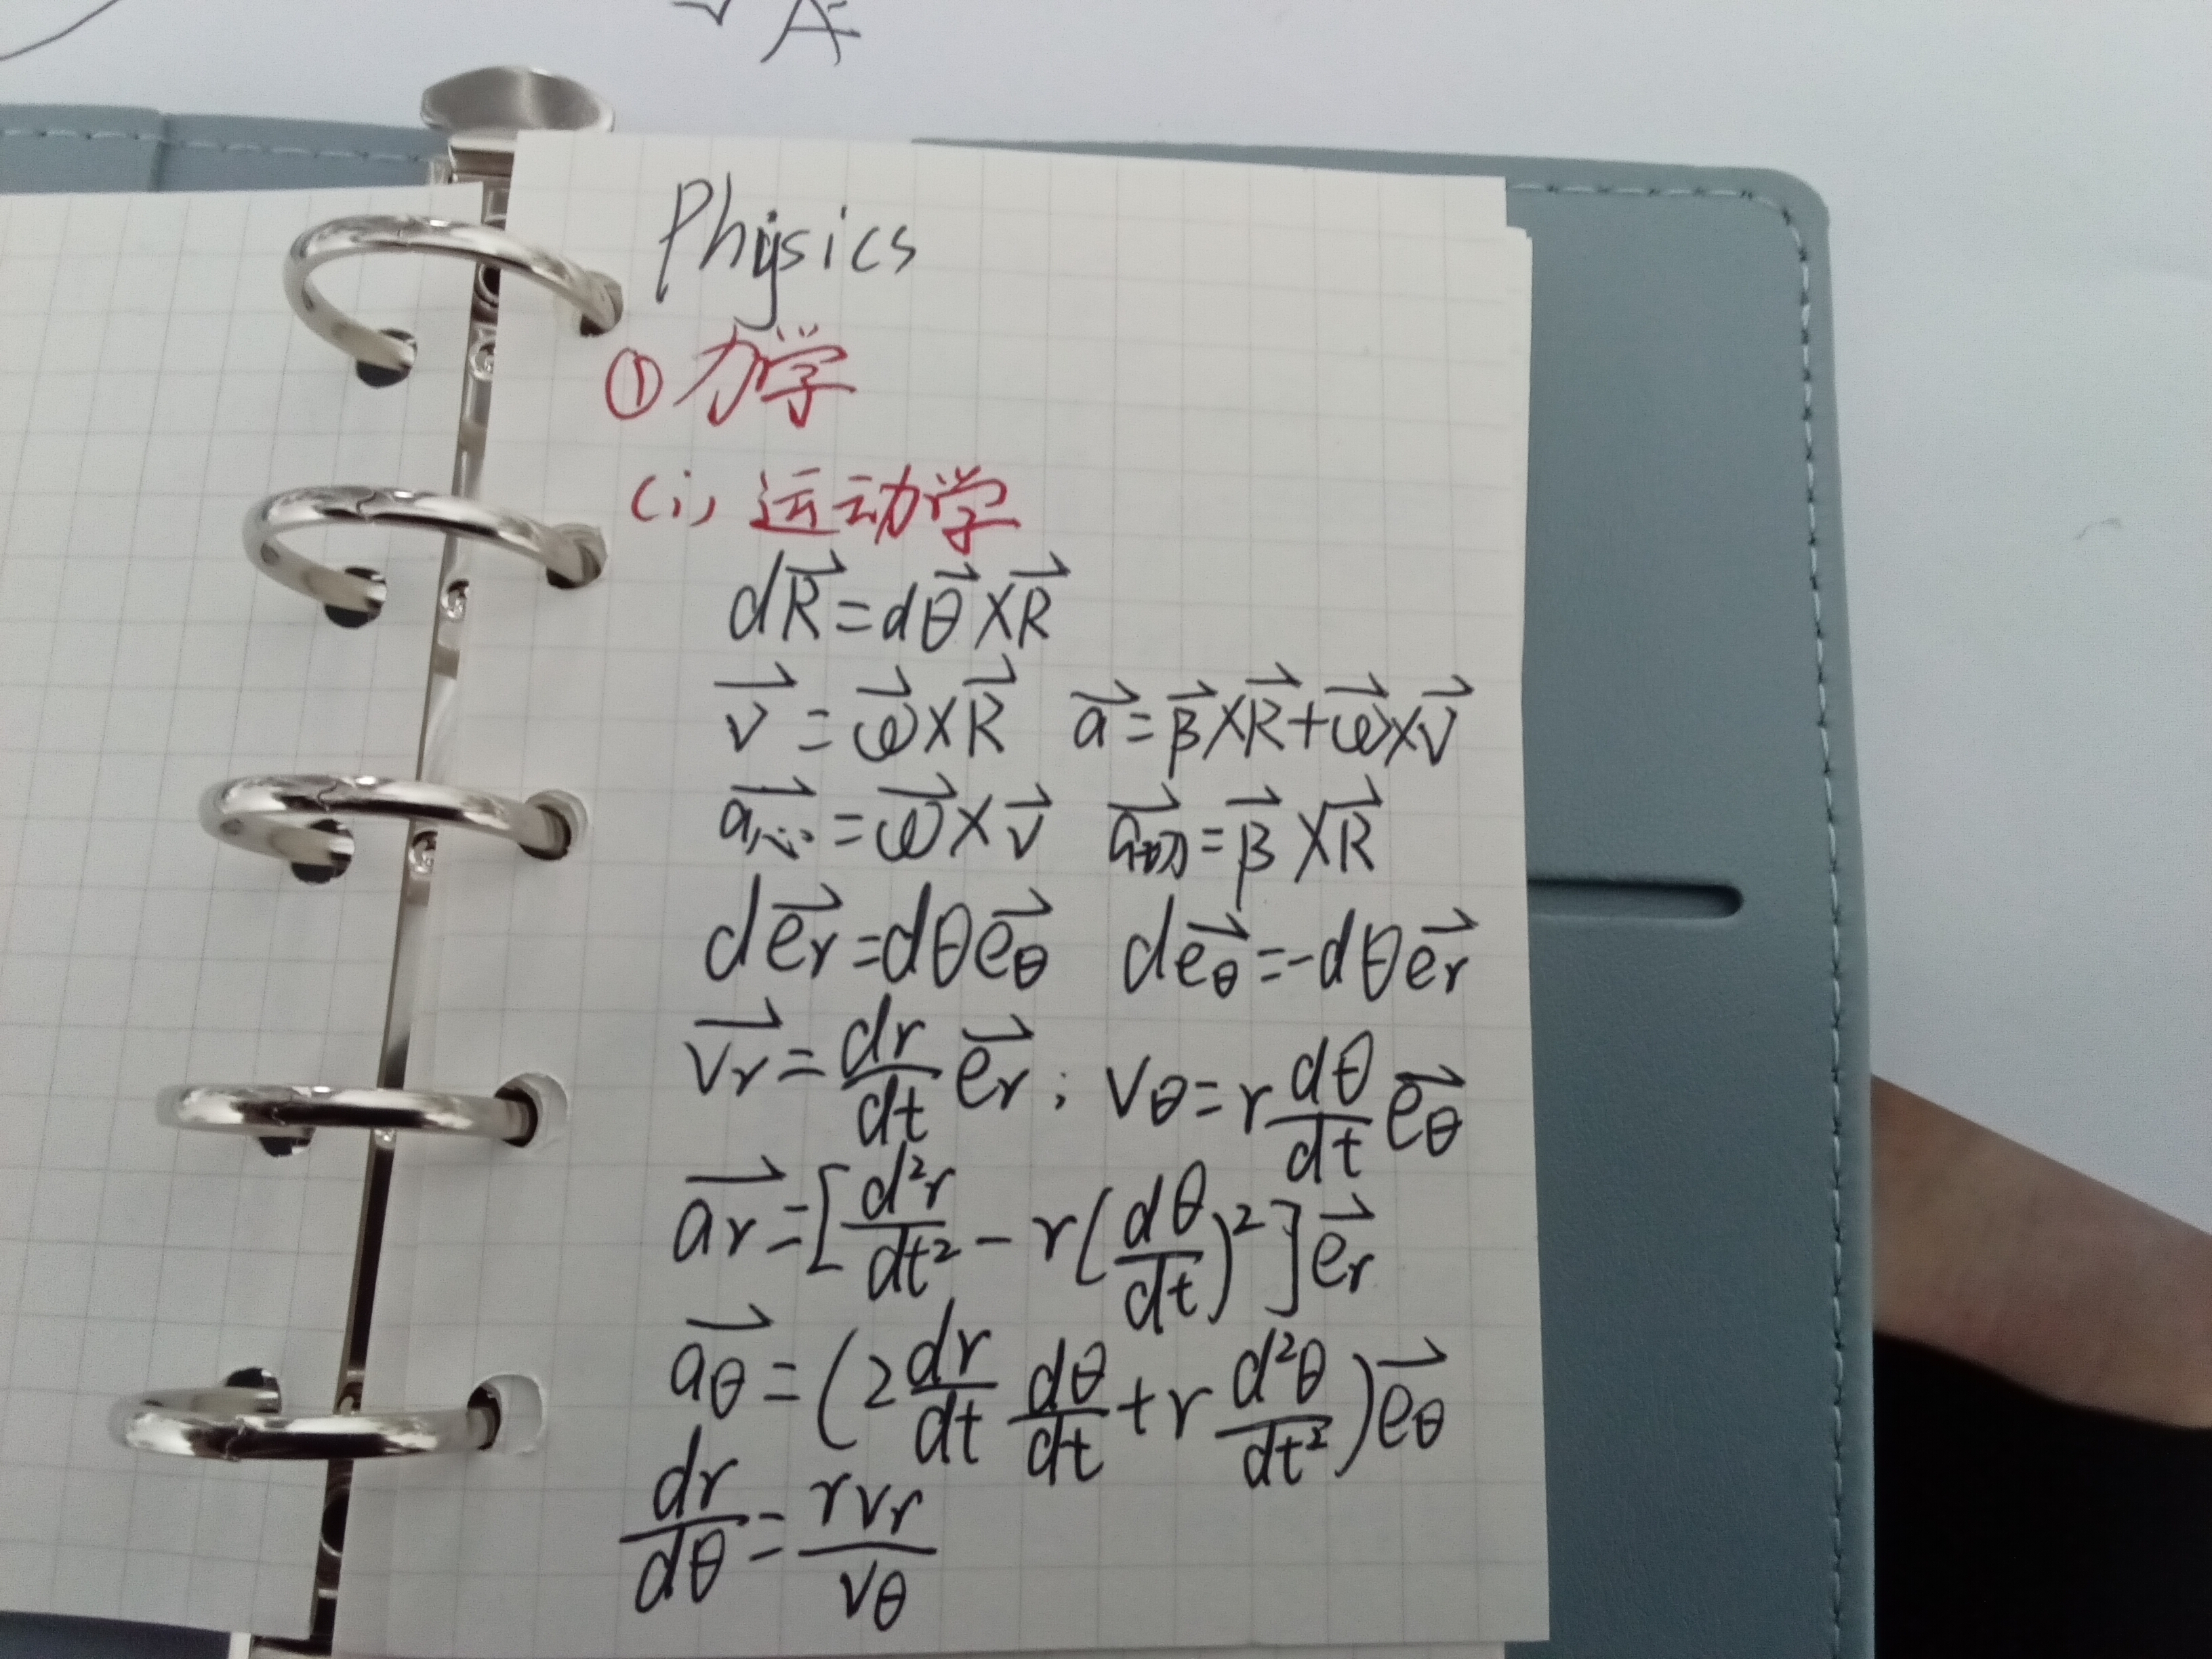 Physics
① 力学
(i) 运动学
d\vec{R} = d\vec{θ} × \vec{R}
\vec{v} = \vec{ω} × \vec{R}  \vec{a} = \vec{β} × \vec{R} + \vec{ω} × \vec{v}
\vec{a_{心}} = \vec{ω} × \vec{v}  \vec{a_{切}} = \vec{β} × \vec{R}
d\vec{e_r} = dθ\vec{e_θ}  d\vec{e_θ} = -dθ\vec{e_r}
\vec{v_r} = \frac{dr}{dt}\vec{e_r} ; v_θ = r\frac{dθ}{dt}\vec{e_θ}
\vec{a_r} = [\frac{d^2r}{dt^2} - r(\frac{dθ}{dt})^2]\vec{e_r}
\vec{a_θ} = (2\frac{dr}{dt}\frac{dθ}{dt} + r\frac{d^2θ}{dt^2})\vec{e_θ}
\frac{dr}{dθ} = \frac{rv_r}{v_θ}